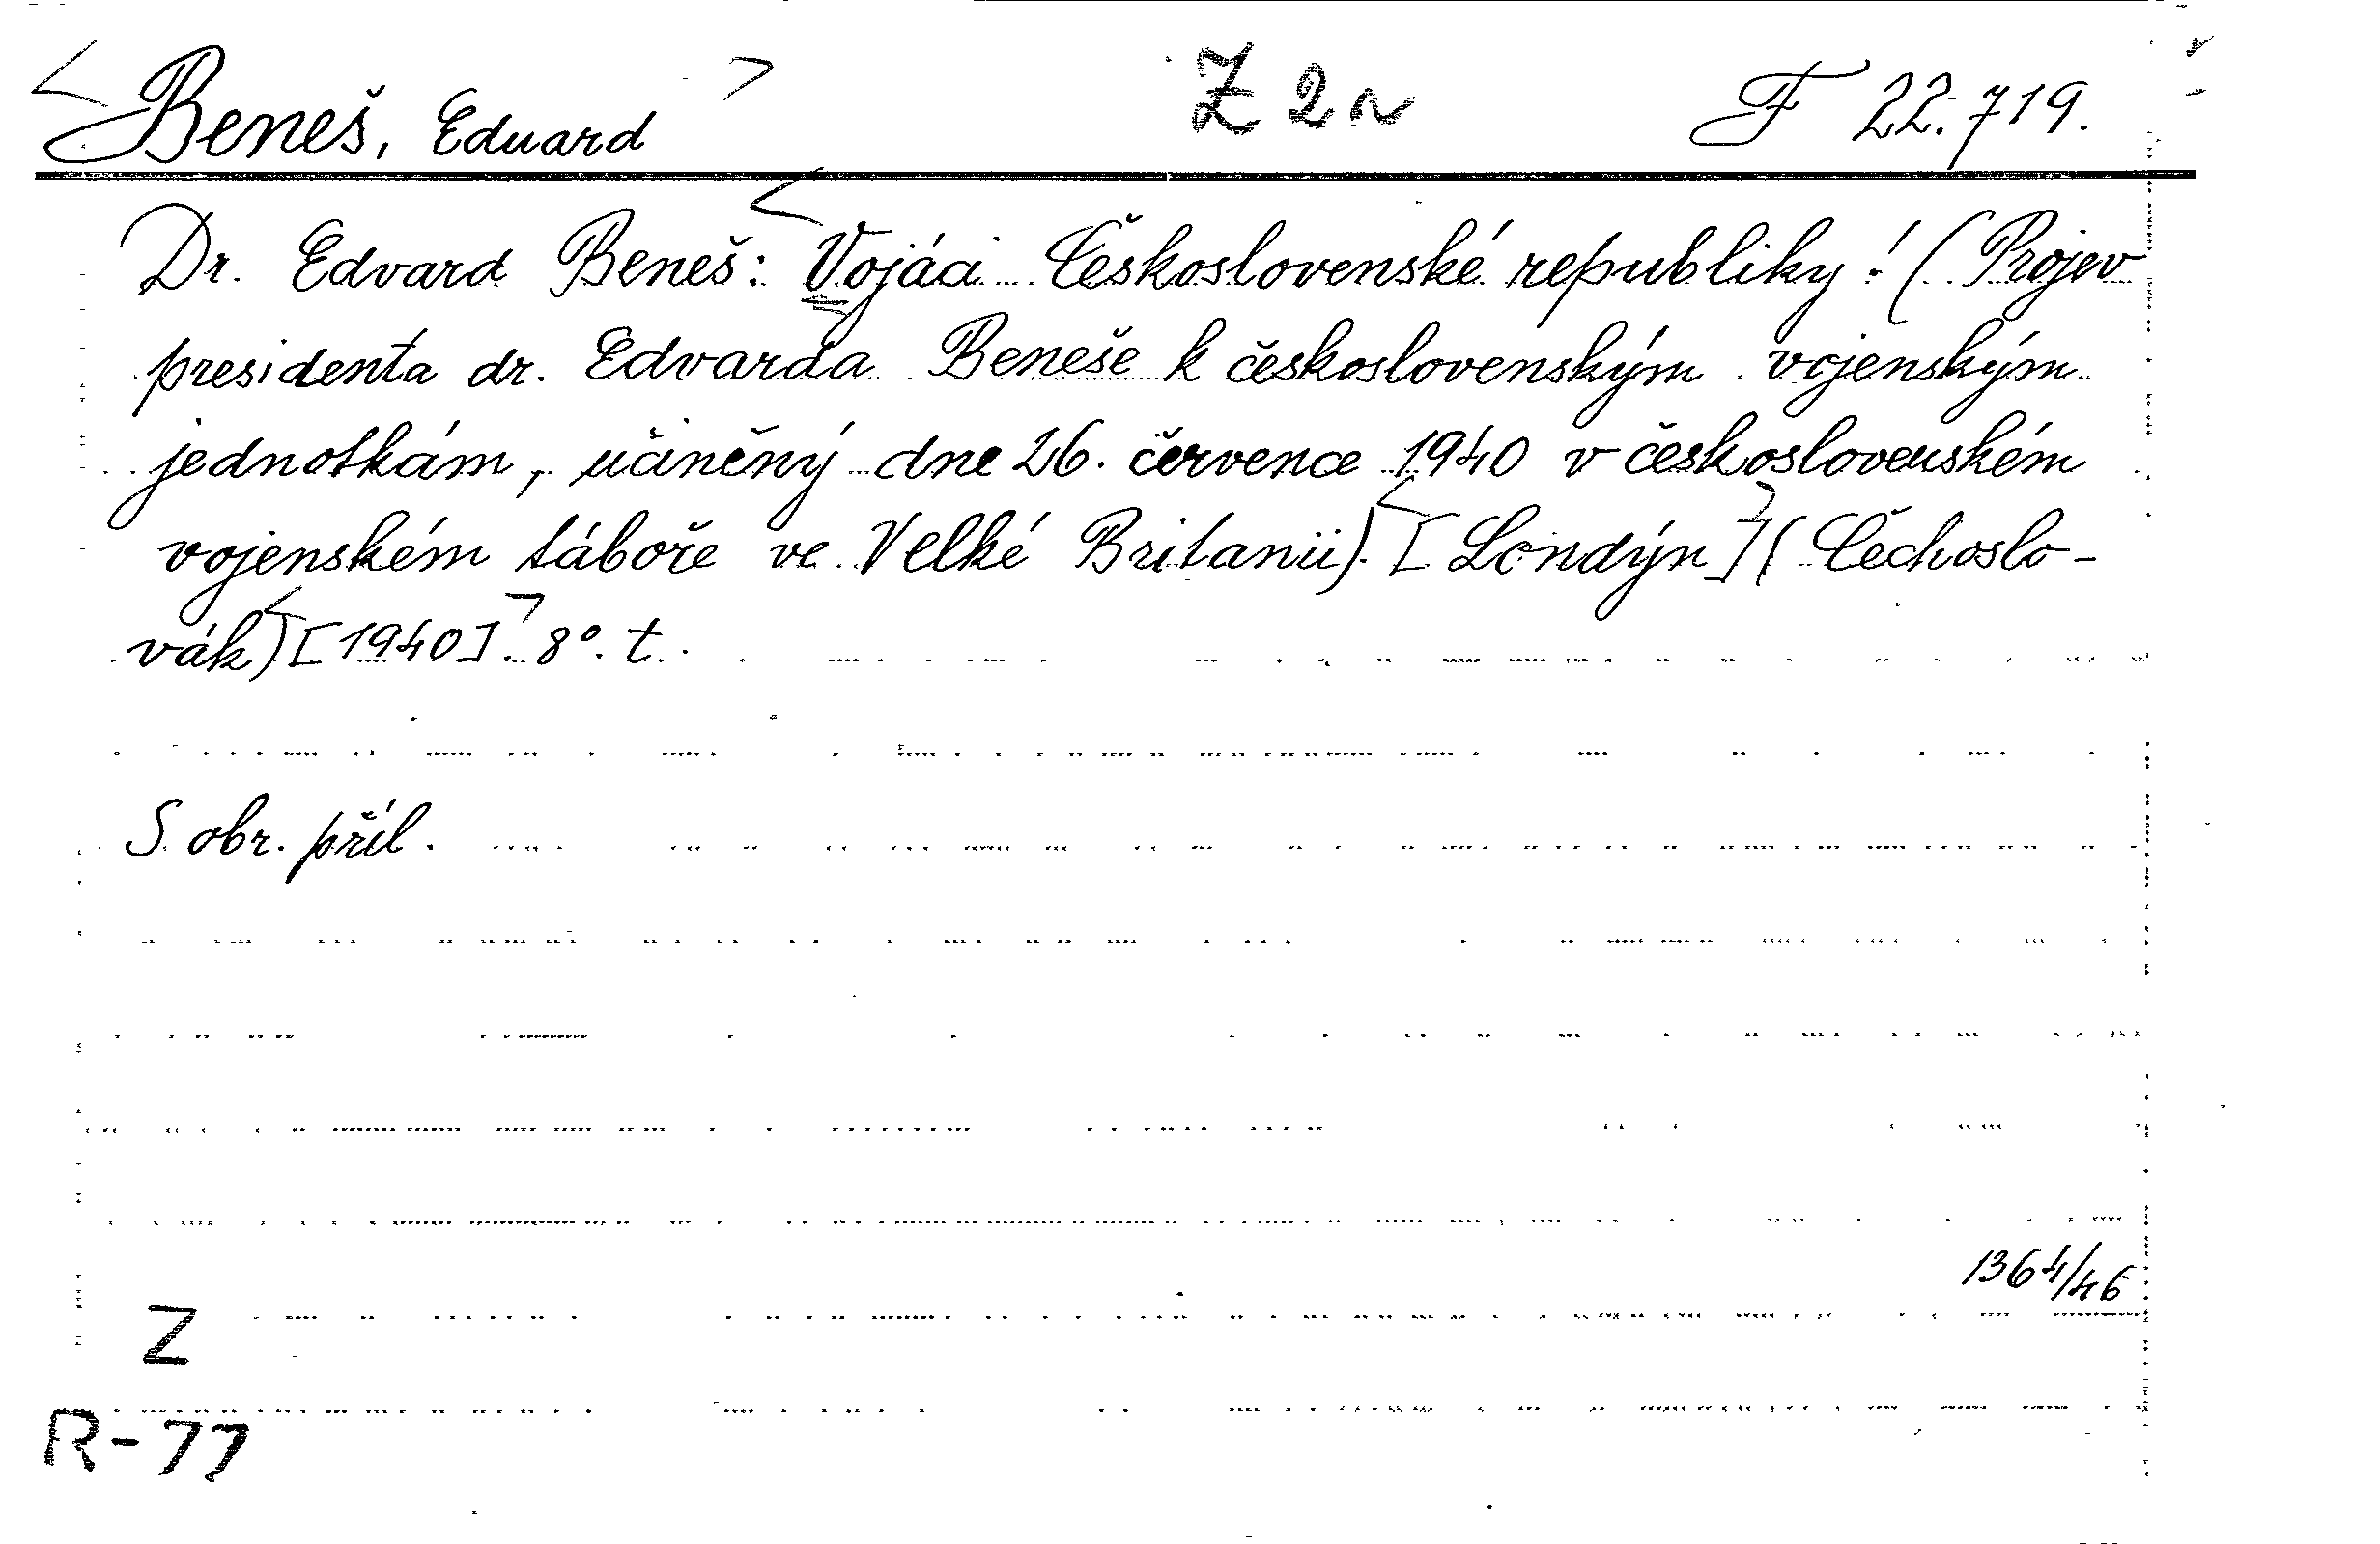 Beneš, Eduard Z 2 F 22.719.
Dr. Edvard Beneš: Vojáci Československé republiky! (Projev
presidenta dr. Edvarda Beneše k československým vojenským
jednotkám, učiněný dne 26. července 1940 v československém
vojenském táboře ve Velké Britanii). [Londýn] (Čechoslo-
vák) [1940]. 8°. t.
S obr. příl.
1364/46
Z
R-77